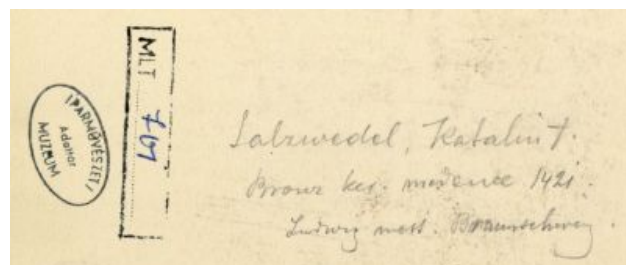 IPARMŰVÉSZETI
Adattár
MÚZEUM
MLT 701
Salzwedel, Katalin t.
Bronz ker. medence 1421.
Ludwig mest. Braunschweig.